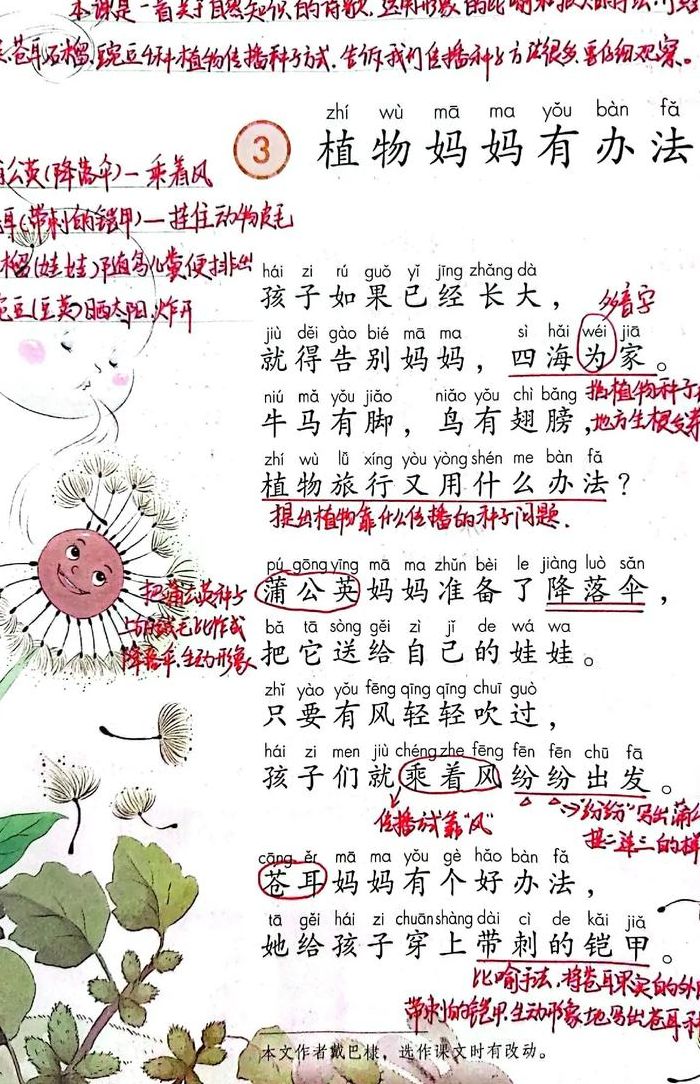 本课是一首关于自然知识的诗歌,运用形象的比喻和拟人的手法,
苍耳、石榴、豌豆4种植物传播种子方式,告诉我们传播种子方法很多,要仔细观察。
zhí wù mā ma yǒu bàn fǎ
3 植物妈妈有办法
公英(降落伞)—乘着风
耳(带刺的铠甲)—挂住动物皮毛
榴(娃娃)随鸟儿粪便排出
豌豆(豆荚)晒太阳,炸开
hái zi rú guǒ yǐ jīng zhǎng dà
孩子如果已经长大,
多音字
jiù děi gào bié mā ma sì hǎi wéi jiā
就得告别妈妈,四海为家。
niú mǎ yǒu jiǎo niǎo yǒu chì bǎng
牛马有脚,鸟有翅膀,
指植物种子
地方生根发芽
zhí wù lǚ xíng yòu yòng shén me bàn fǎ
植物旅行又用什么办法?
提出植物靠什么传播的种子问题.
pú gōng yīng mā ma zhǔn bèi le jiàng luò sǎn
蒲公英妈妈准备了降落伞,
把蒲公英种子
上的绒毛比作成
降落伞,生动形象
bǎ tā sòng gěi zì jǐ de wá wa
把它送给自己的娃娃。
zhǐ yào yǒu fēng qīng qīng chuī guò
只要有风轻轻吹过,
hái zi men jiù chéng zhe fēng fēn fēn chū fā
孩子们就乘着风纷纷出发。
传播方式靠"风"
"纷纷"写出蒲公
接二连三的样
cāng ěr mā ma yǒu gè hǎo bàn fǎ
苍耳妈妈有个好办法,
tā gěi hái zi chuān shàng dài cì de kǎi jiǎ
她给孩子穿上带刺的铠甲。
比喻手法,将苍耳果实的外
带刺的铠甲,生动形象地写出苍耳种
本文作者戴巴棣,选作课文时有改动。